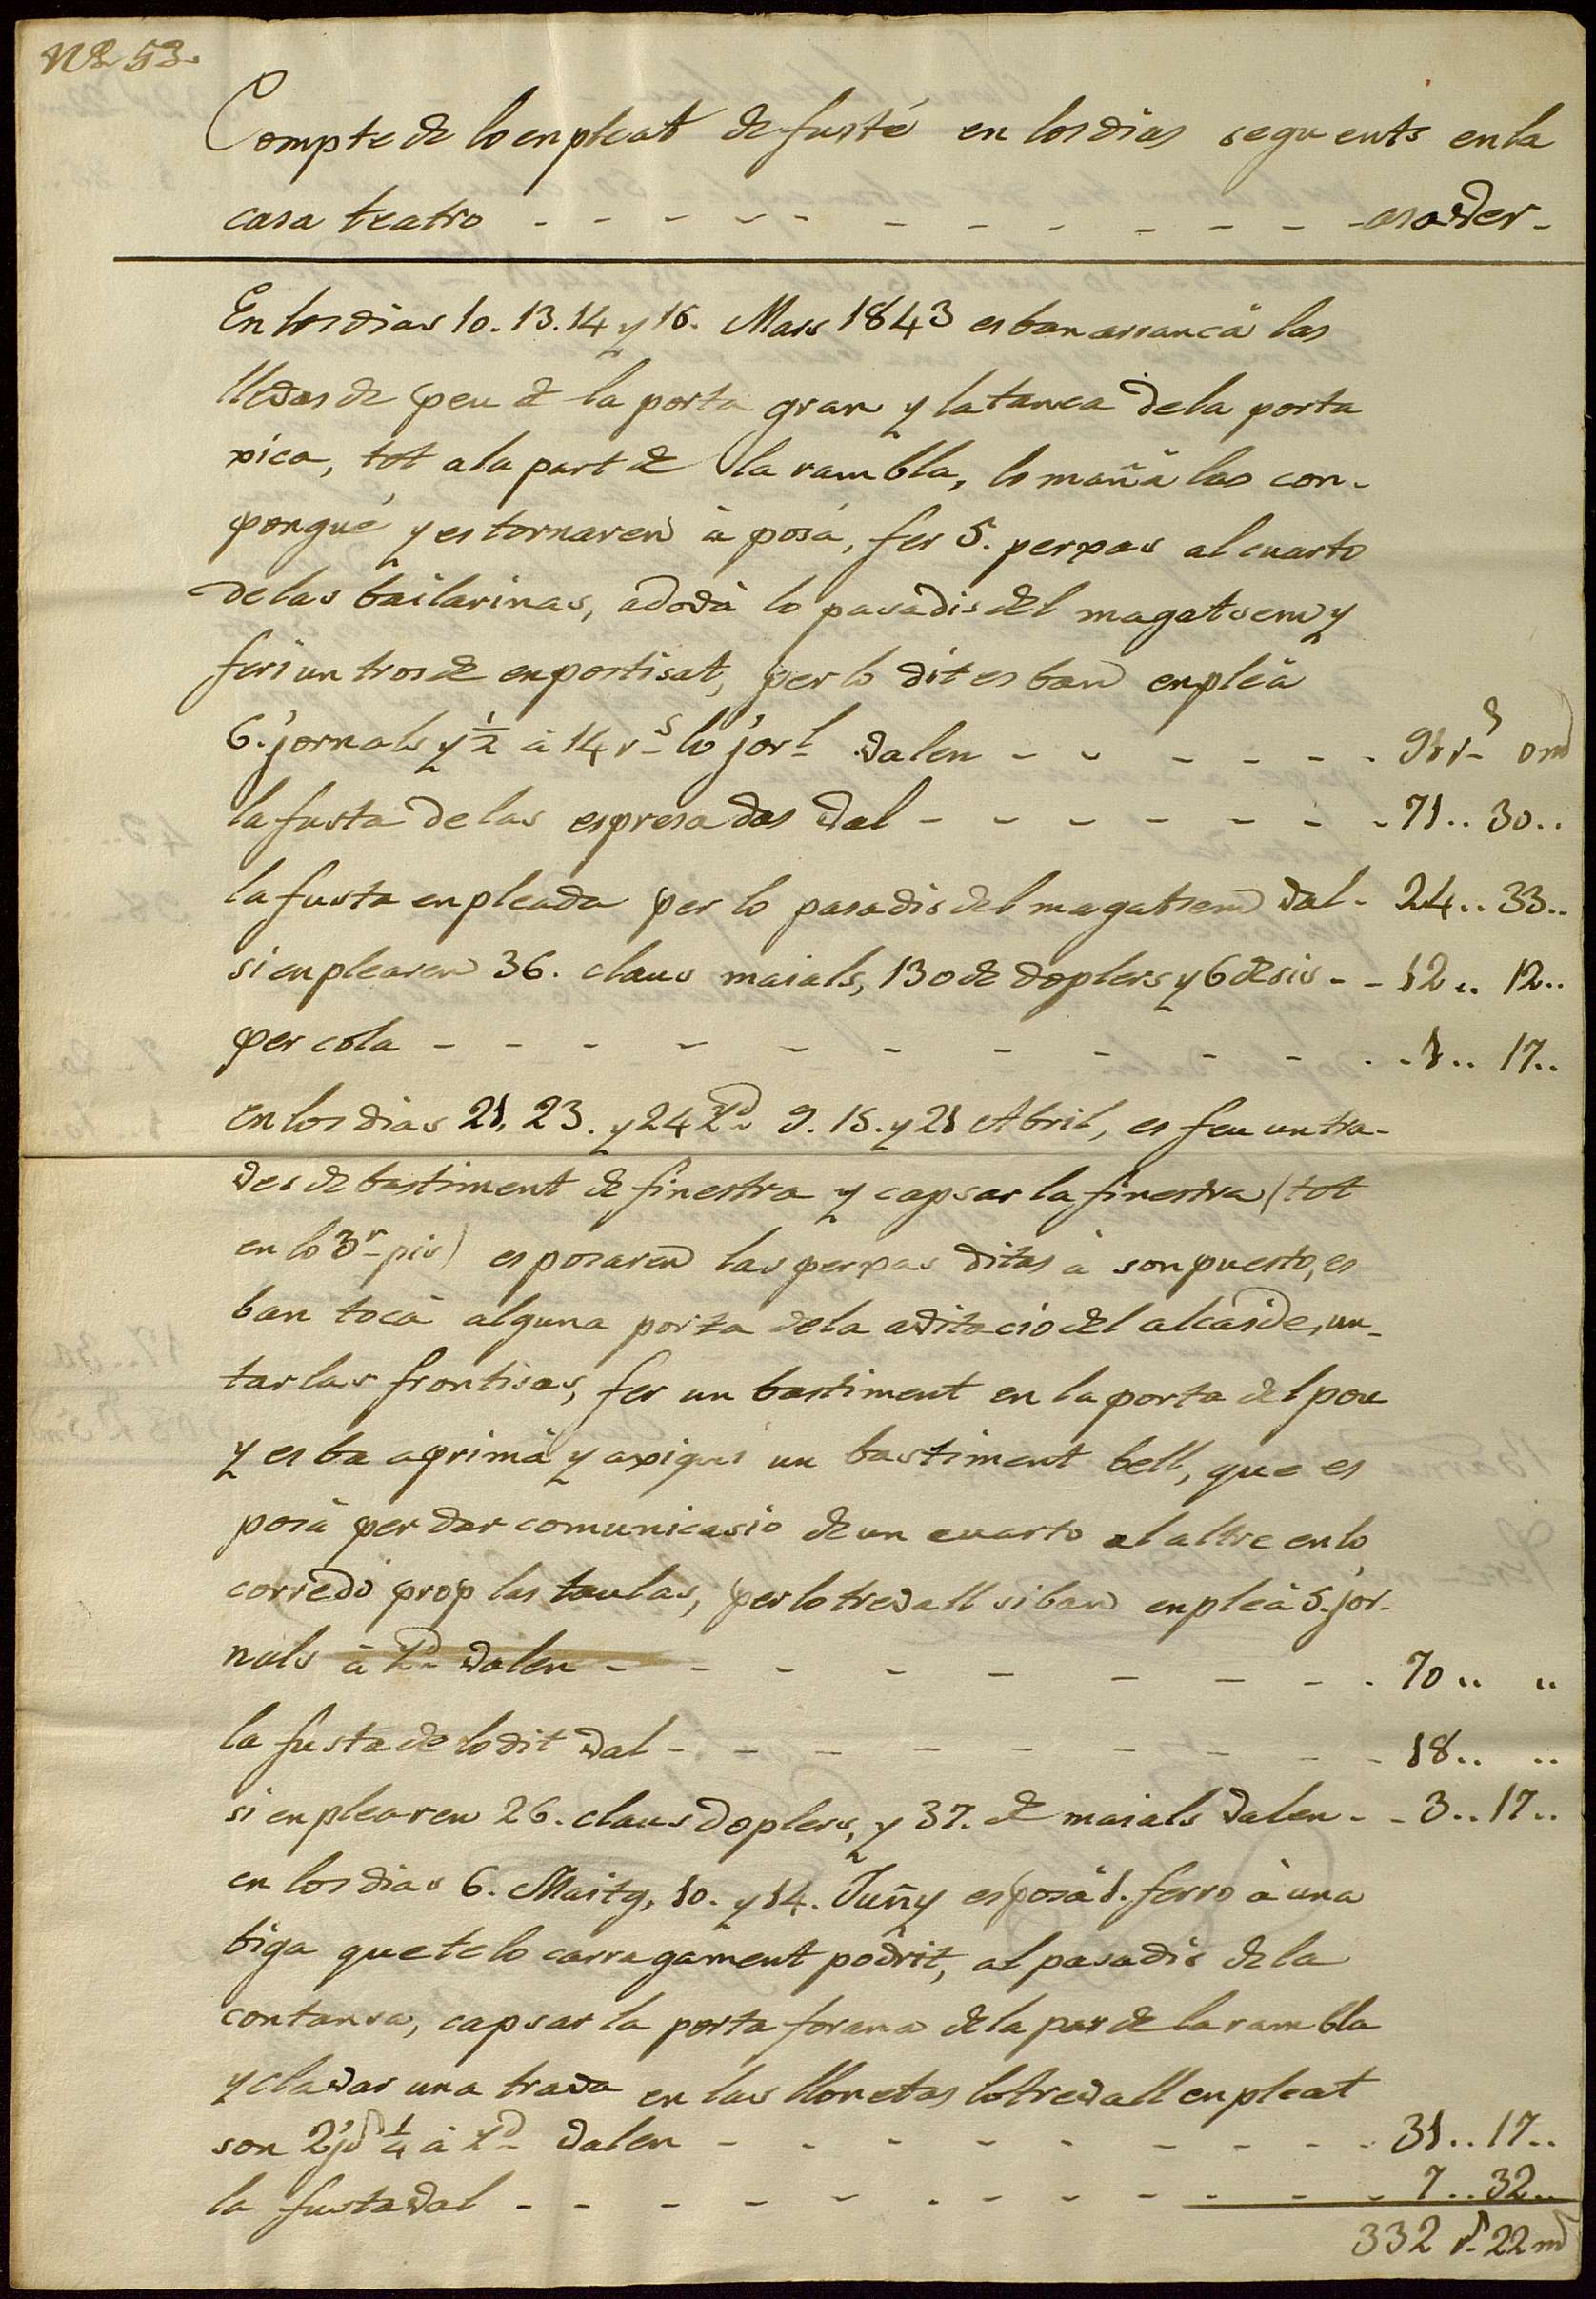 Nº 53.
Compte de lo enpleat de fusté en los dias seguents en la
casa teatro - - - - - - - - - - - - asaver -
En los dias 10. 13. 14 y 16. Mars 1843 es ban arrancá las
llevas de peu de la porta gran y la tanca de la porta
xica, tot a la part de la rambla, lo mañá las con-
pongué y es tornaren à posá, fer 5. perxas al cuarto
de las bailarinas, adobà lo pasadis del magatsem y
feri un tros de enpostisat, per lo dit es ban enpleà
6. jornals y ½ à 14 rs lo jorl. valen - - - - - - 91 rs 0 m
la fusta de las espresadas val - - - - - - - 71.. 30..
la fusta enpleada per lo pasadis del magatsem val - 24.. 33..
si enplearen 36. claus maials, 130 de doplers y 6 de sis - - 12.. 12..
per cola - - - - - - - - - - - - 1.. 17..
en los dias 21, 23. y 24 Yd. 9. 15. y 21 Abril, es feu un tra-
ves de bastiment de finestra y capsar la finestra (tot
en lo 3r pis) es posaren las perxas ditas à son puesto, es
ban tocà alguna porta de la avitació del alcaide, un-
tar las frontisas, fer un bastiment en la porta del pou
y es ba aprimá y axiqui un bastiment bell, que es
posà per dar comunicasio de un cuarto al altre en lo
corredó prop las taulas, per lo trevall si ban enpleà 5. jor-
nals à Yd. valen - - - - - - - - 70 .. ..
la fusta de lo dit val - - - - - - - - 18.. ..
si enplearen 26. claus doplers, y 37. de maials valen - - 3.. 17..
en los dias 6. Maitg, 10. y 14. Juñy es posà 1. ferro à una
biga que te lo carragament podrit, al pasadis de la
contansa, capsar la porta forana de la par de la rambla
y clavar una trava en las llonetas lo trevall enpleat
son 2 jls ¼ à Yd. valen - - - - - - - - 31.. 17..
la fusta val - - - - - - - - - - - 7.. 32..
332 rs 22 m